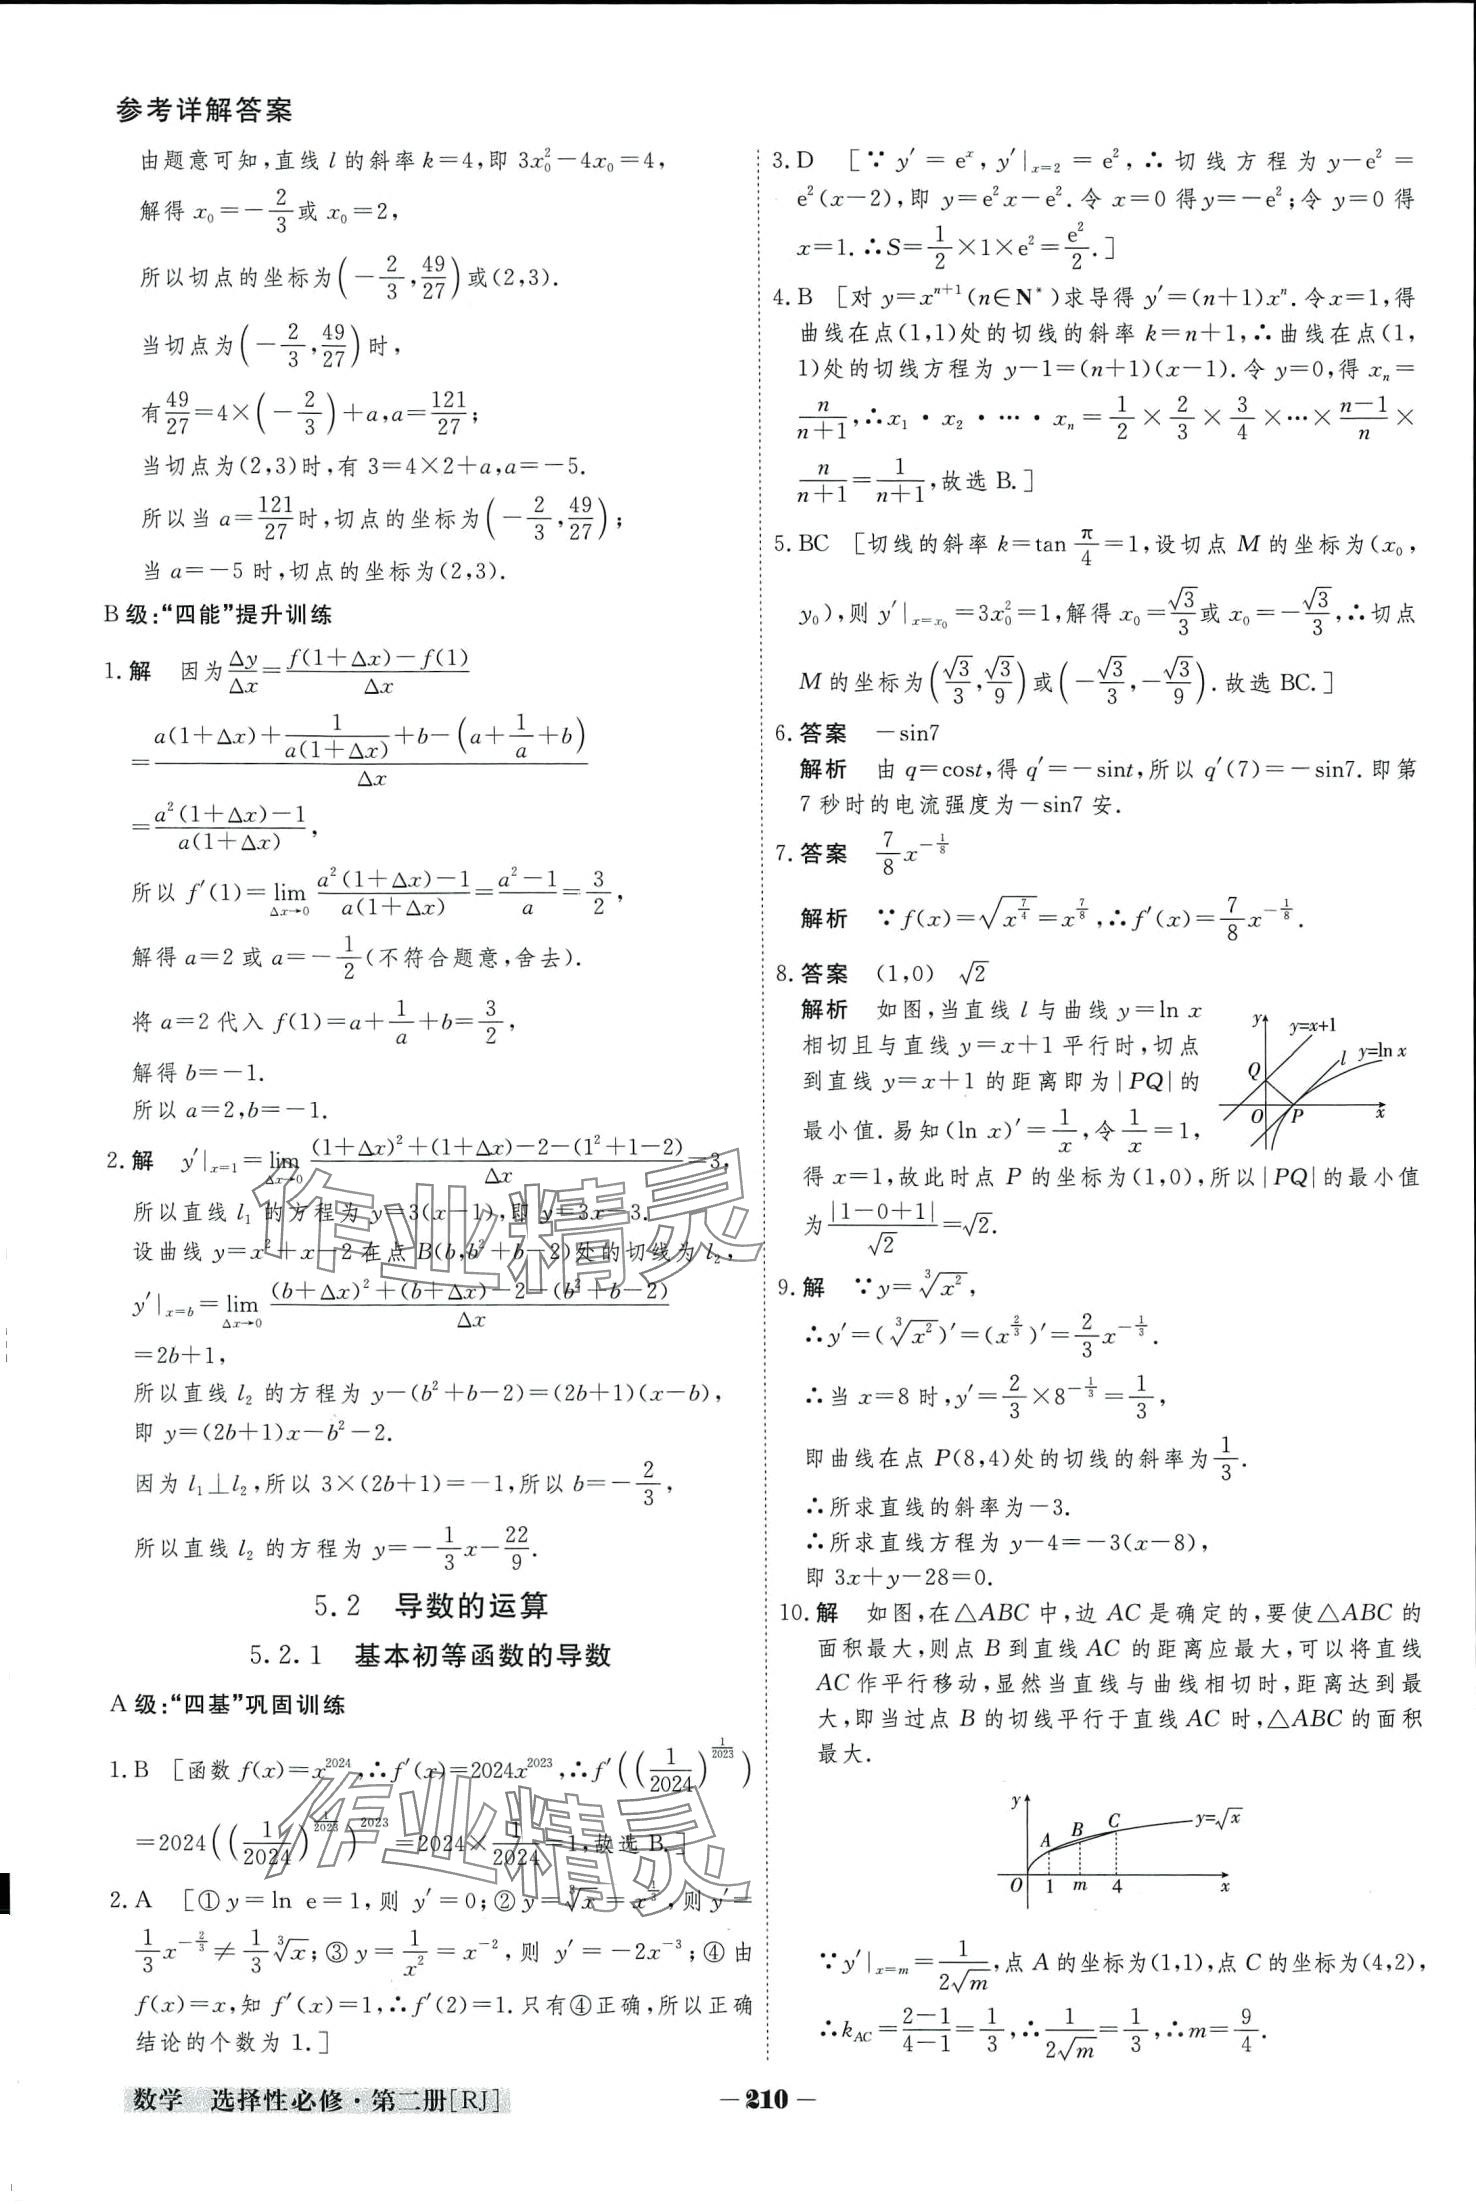 参考详解答案
由题意可知,直线 l 的斜率 k=4,即 3x₀²-4x₀=4,
解得 x₀=-2/3或 x₀=2,
所以切点的坐标为(-2/3,49/27)或(2,3).
当切点为(-2/3,49/27)时,
有49/27=4×(-2/3)+a,a=121/27;
当切点为(2,3)时,有 3=4×2+a,a=-5.
所以当 a=121/27时,切点的坐标为(-2/3,49/27);
当 a=-5 时,切点的坐标为(2,3).
B 级:“四能”提升训练
1.解 因为Δy/Δx=(f(1+Δx)-f(1))/Δx
=(a(1+Δx)+1/(a(1+Δx))+b-(a+1/a+b))/Δx
=(a²(1+Δx)-1)/(a(1+Δx)),
所以 f′(1)=lim(Δx→0) (a²(1+Δx)-1)/(a(1+Δx))=(a²-1)/a=3/2,
解得 a=2 或 a=-1/2(不符合题意,舍去).
将 a=2 代入 f(1)=a+1/a+b=3/2,
解得 b=-1.
所以 a=2,b=-1.
2.解 y′|x=1=lim(Δx→0) ((1+Δx)²+(1+Δx)-2-(1²+1-2))/Δx=3,
所以直线 l₁ 的方程为 y=3(x-1),即 y=3x-3.
设曲线 y=x²+x-2 在点 B(b,b²+b-2)处的切线为 l₂,
y′|x=b=lim(Δx→0) ((b+Δx)²+(b+Δx)-2-(b²+b-2))/Δx
=2b+1,
所以直线 l₂ 的方程为 y-(b²+b-2)=(2b+1)(x-b),
即 y=(2b+1)x-b²-2.
因为 l₁⊥l₂,所以 3×(2b+1)=-1,所以 b=-2/3,
所以直线 l₂ 的方程为 y=-1/3x-22/9.
5.2 导数的运算
5.2.1 基本初等函数的导数
A 级:“四基”巩固训练
1.B [函数 f(x)=x^2024,∴f′(x)=2024x^2023,∴f′((1/2024)^(1/2023))
=2024((1/2024)^(1/2023))^2023=2024×1/2024=1,故选 B.]
2.A [①y=ln e=1,则 y′=0;②y=∛x=x^(1/3),则 y′=
1/3x^(-2/3)≠1/3∛x;③y=1/x²=x⁻²,则 y′=-2x⁻³;④由
f(x)=x,知 f′(x)=1,∴f′(2)=1.只有④正确,所以正确
结论的个数为 1.]
3.D [∵y′=eˣ,y′|x=2=e²,∴切线方程为 y-e²=
e²(x-2),即 y=e²x-e².令 x=0 得y=-e²;令 y=0 得
x=1.∴S=1/2×1×e²=e²/2.]
4.B [对 y=xⁿ⁺¹(n∈N*)求导得 y′=(n+1)xⁿ.令x=1,得
曲线在点(1,1)处的切线的斜率 k=n+1,∴曲线在点(1,
1)处的切线方程为 y-1=(n+1)(x-1).令 y=0,得 xₙ=
n/(n+1),∴x₁·x₂·…·xₙ=1/2×2/3×3/4×…×(n-1)/n×
n/(n+1)=1/(n+1),故选 B.]
5.BC [切线的斜率 k=tan π/4=1,设切点 M 的坐标为(x₀,
y₀),则 y′|x=x₀=3x₀²=1,解得 x₀=√3/3或 x₀=-√3/3,∴切点
M 的坐标为(√3/3,√3/9)或(-√3/3,-√3/9).故选 BC.]
6.答案 -sin7
解析 由 q=cost,得 q′=-sint,所以 q′(7)=-sin7.即第
7 秒时的电流强度为-sin7 安.
7.答案 7/8x^(-1/8)
解析 ∵f(x)=√(x^(7/4))=x^(7/8),∴f′(x)=7/8x^(-1/8).
8.答案 (1,0) √2
解析 如图,当直线 l 与曲线 y=ln x
相切且与直线 y=x+1 平行时,切点
到直线 y=x+1 的距离即为|PQ|的
最小值.易知(ln x)′=1/x,令1/x=1,
y
y=x+1
l
y=ln x
Q
O
P
x
得 x=1,故此时点 P 的坐标为(1,0),所以|PQ|的最小值
为|1-0+1|/√2=√2.
9.解 ∵y=∛(x²),
∴y′=(∛(x²))′=(x^(2/3))′=2/3x^(-1/3).
∴当 x=8 时,y′=2/3×8^(-1/3)=1/3,
即曲线在点 P(8,4)处的切线的斜率为1/3.
∴所求直线的斜率为-3.
∴所求直线方程为 y-4=-3(x-8),
即 3x+y-28=0.
10.解 如图,在△ABC 中,边 AC 是确定的,要使△ABC 的
面积最大,则点 B 到直线 AC 的距离应最大,可以将直线
AC作平行移动,显然当直线与曲线相切时,距离达到最
大,即当过点 B 的切线平行于直线 AC 时,△ABC 的面积
最大.
y
A
B
C
y=√x
O
1
m
4
x
∵y′|x=m=1/(2√m),点 A 的坐标为(1,1),点 C的坐标为(4,2),
∴k_AC=(2-1)/(4-1)=1/3,∴1/(2√m)=1/3,∴m=9/4.
数学 选择性必修·第二册[RJ]
-210-
作业精灵
作业精灵